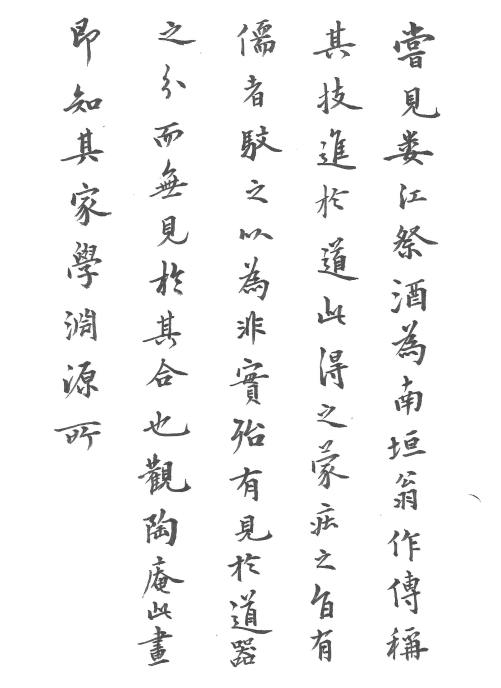 嘗見婁江祭酒為南垣翁作傳稱
其技進於道此得之蒙莊之旨有
儒者駁之以為非實殆有見於道器
之分而無見於其合也觀陶庵此畫
即知其家學淵源所